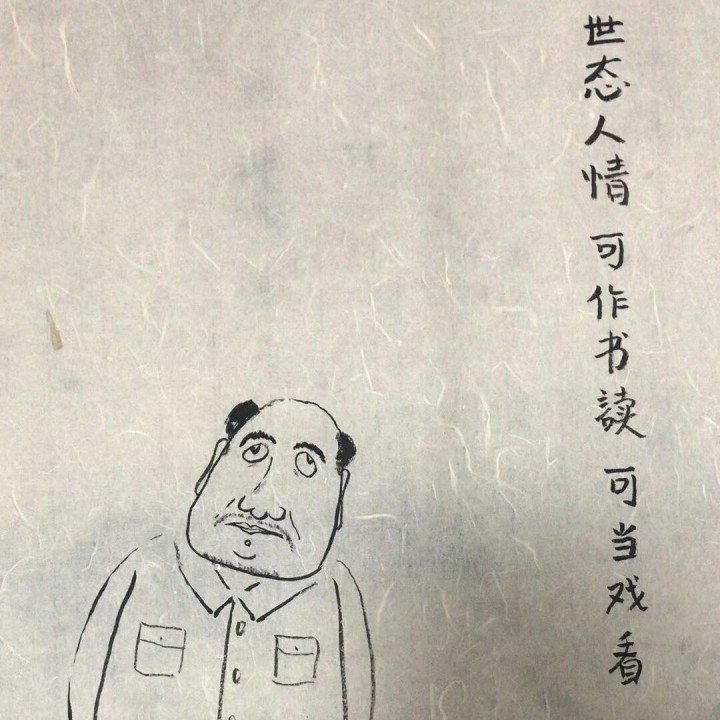 世态人情 可作书读 可当戏看